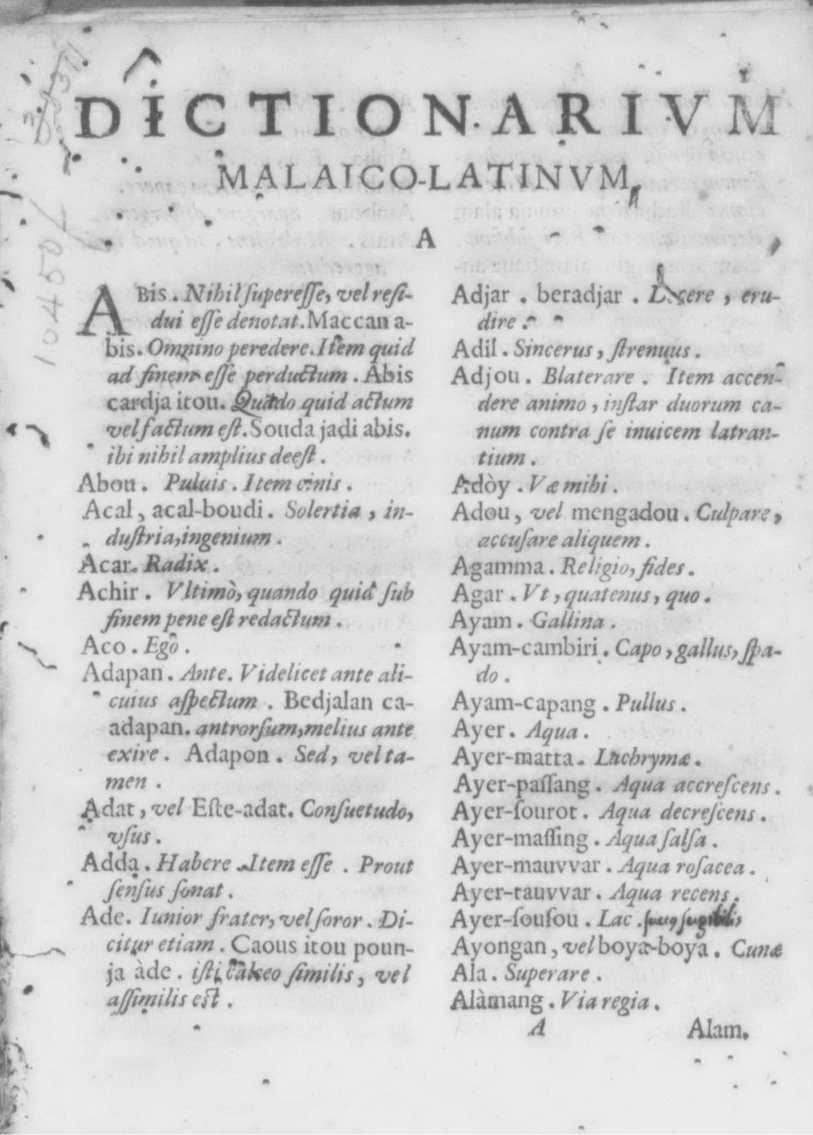 DICTIONARIVM
MALAICO-LATINVM,
A
ABIS. Nihil superesse, vel resi-
dui esse denotat. Maccan a-
bis. Omnino peredere. Item quid
ad finem esse perductum. Abis
cardja itou. Quãdo quid actum
vel factum est. Souda jadi abis.
ibi nihil amplius deest.
Abou. Puluis. Item cinis.
Acal, acal-boudi. Solertia, in-
dustria, ingenium.
Acar. Radix.
Achir. Vltimò, quando quid sub
finem pene est redactum.
Aco. Ego.
Adapan. Ante. Videlicet ante ali-
cuius aspectum. Bedjalan ca-
adapan. antrorsum, melius ante
exire. Adapon. Sed, vel ta-
men.
Adat, vel Este-adat. Consuetudo,
vsus.
Adda. Habere. Item esse. Prout
sensus sonat.
Ade. Iunior frater, vel soror. Di-
citur etiam. Caous itou poun-
ja àde. isti calceo similis, vel
assimilis est.
Adjar. beradjar. Docere, eru-
dire.
Adil. Sincerus, strenuus.
Adjou. Blaterare. Item accen-
dere animo, instar duorum ca-
num contra se inuicem latran-
tium.
Adòy. Væ mihi.
Adou, vel mengadou. Culpare,
accusare aliquem.
Agamma. Religio, fides.
Agar. Vt, quatenus, quo.
Ayam. Gallina.
Ayam-cambiri. Capo, gallus, spa-
do.
Ayam-capang. Pullus.
Ayer. Aqua.
Ayer-matta. Lachrymæ.
Ayer-passang. Aqua accrescens.
Ayer-sourot. Aqua decrescens.
Ayer-massing. Aqua salsa.
Ayer-mauvvar. Aqua rosacea.
Ayer-tauvvar. Aqua recens.
Ayer-sousou. Lac.
Ayongan, vel boya-boya. Cunæ
Ala. Superare.
Alàmang. Via regia.
A Alam.
10450